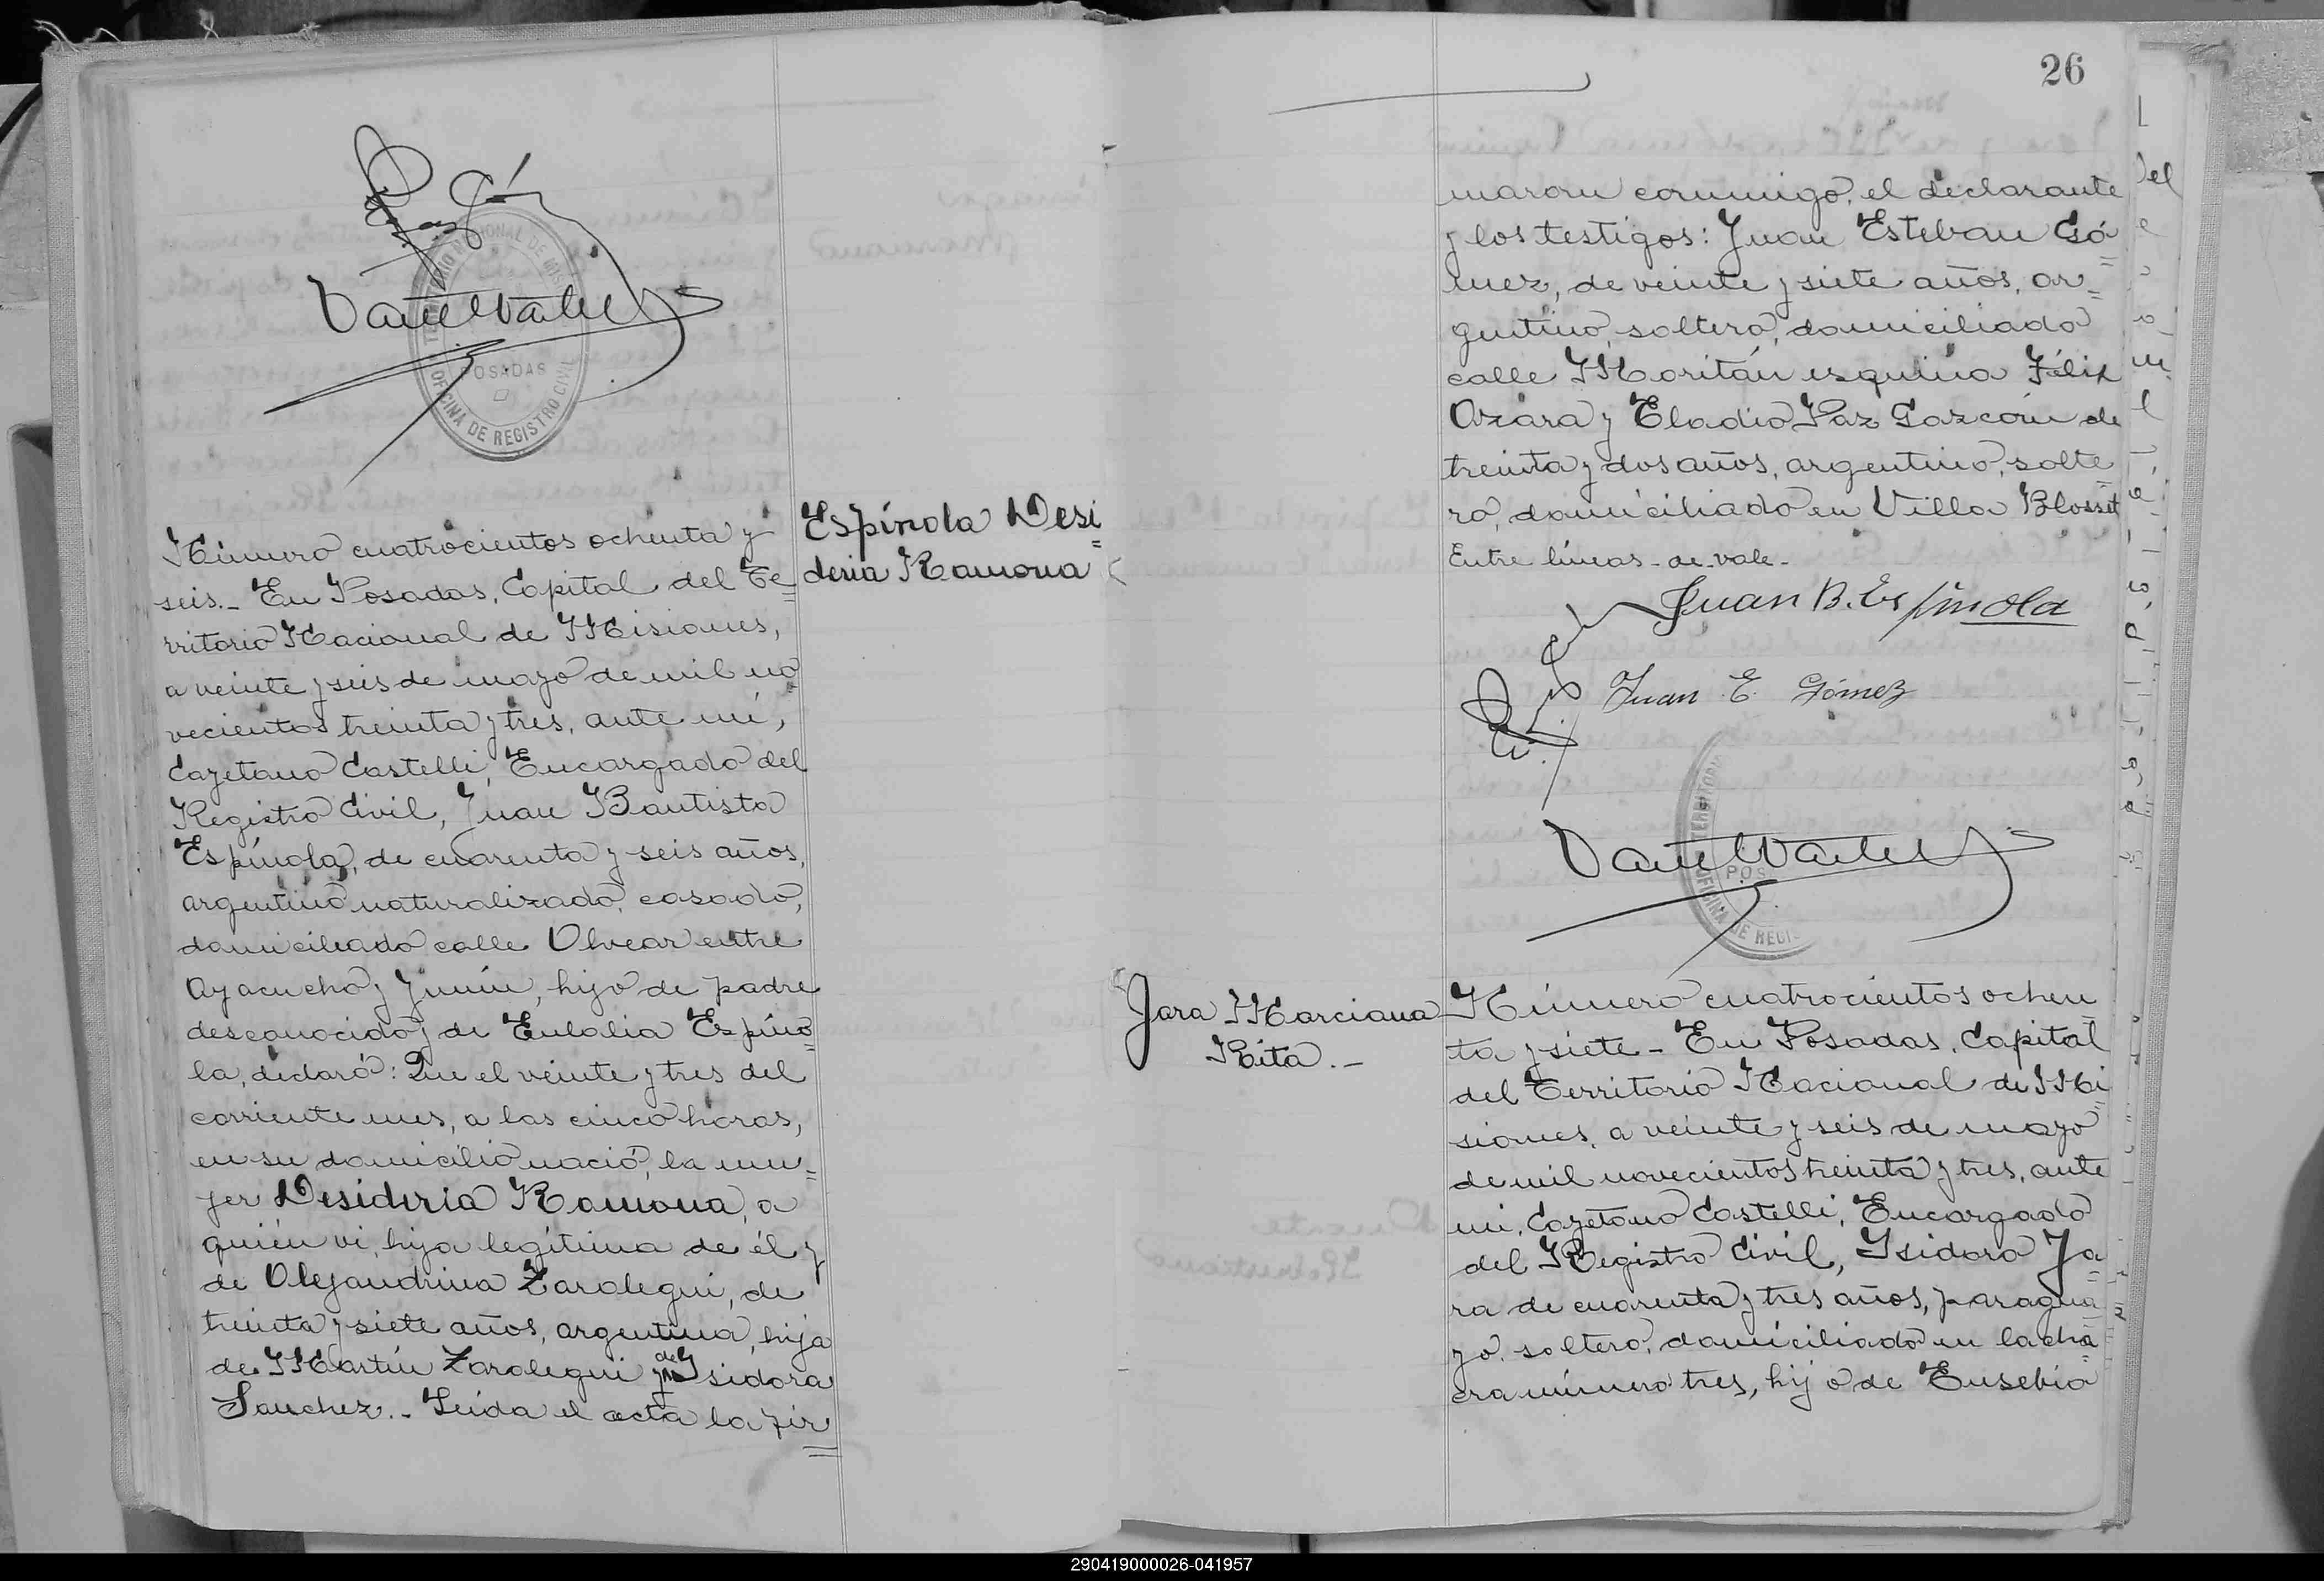 TERRITORIO NACIONAL DE MIS
POSADAS
OFICINA DE REGISTRO CIVIL
Espínola Desi=
deria Ramona
Número cuatrocientos ochenta y
seis.- En Posadas, Capital del Te=
rritorio Nacional de Misiones,
a veinte y seis de mayo de mil no=
vecientos treinta y tres, ante mí,
Cayetano Castelli, Encargado del
Registro Civil, Juan Bautista
Espínola, de cuarenta y seis años,
argentino naturalizado, casado,
domiciliado calle Alvear entre
Ayacucho y Junín, hijo de padre
desconocido y de Eulalia Espíno=
la, declaró: Que el veinte y tres del
corriente mes, a las cinco horas,
en su domicilio nació, la mu=
jer Desideria Ramona, a
quién vi, hija legítima de él y
de Alejandrina Zaralegui, de
treinta y siete años, argentina, hija
de Martín Zaralegui y de Isidora
Sanchez.- Leida el acta la fir=
26
maron conmigo, el declarante
y los testigos: Juan Esteban Gó=
mez, de veinte y siete años, ar=
gentino, soltero, domiciliado
calle Moritán esquina Félix
Azara y Eladio Paz Gazcón de
treinta y dos años, argentino, solte
ro, domiciliado en Villa Blosset
Entre líneas-de-vale-
Juan B. Espinola
Juan E. Gómez
TERRITORIO
POS
OFICINA DE REGIS
Jara Marciana
Rita.-
Número cuatrocientos ochen
ta y siete- En Posadas, Capital
del Territorio Nacional de Mi=
siones, a veinte y seis de mayo
de mil novecientos treinta y tres, ante
mi, Cayetano Castelli, Encargado
del Registro Civil, Isidoro Ja=
ra de cuarenta y tres años, paragua=
yo, soltero, domiciliado en la cha=
cra número tres, hijo de Eusebia
290419000026-041957